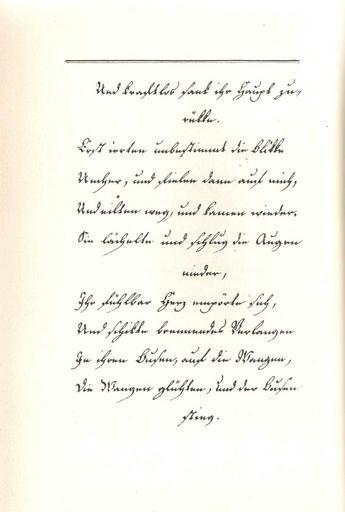 Und kraftlos sank ihr Haupt zu-
rükke.
Erst irrten unbestimmt die Blikke
Umher, und fielen dann auf mich,
Und eilten weg, und kamen wieder.
Sie lächelte und schlug die Augen
nieder,
Ihr fühlbar Herz empörte sich,
Und schikte brennendes Verlangen
In ihren Busen, auf die Wangen,
Die Wangen glühten, und der Busen
stieg.